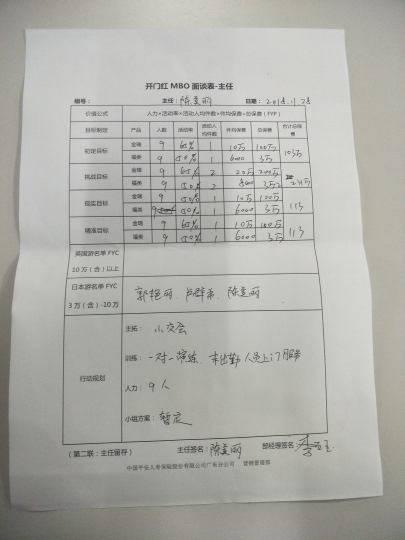 开门红 MBO 面谈表-主任
组号： 主任：陈美丽 日期：2018.11.28
价值公式 人力×活动率×活动人均件数×件均保费=总保费（FYP）
目标制定 产品 人数 活动率 活动人均件数 件均保费 总保费 合计总保费
初定目标 金瑞 9 65% 1 10万 100万
福美 9 50% 1 6000 3万 103万
挑战目标 金瑞 9 65% 2 20万 200万
福美 9 50% 2
现实目标 金瑞 9 50% 1 10万 100万
福美 9 50% 1 6000 3万 113
精准目标 金瑞 9 50% 1 10万 100万
福美 9 50% 1 6000 3万 113
英国游名单 FYC
10 万（含）以上
日本游名单 FYC
3 万（含）-10万
陈美丽
行动规划
主拓：小交会
训练：一对一演练、未出勤人员上门服务
人力：9人
小组方案：暂定
（第二联：主任留存） 主任签名：陈美丽 部经理签名：
中国平安人寿保险股份有限公司广东分公司 营销管理部